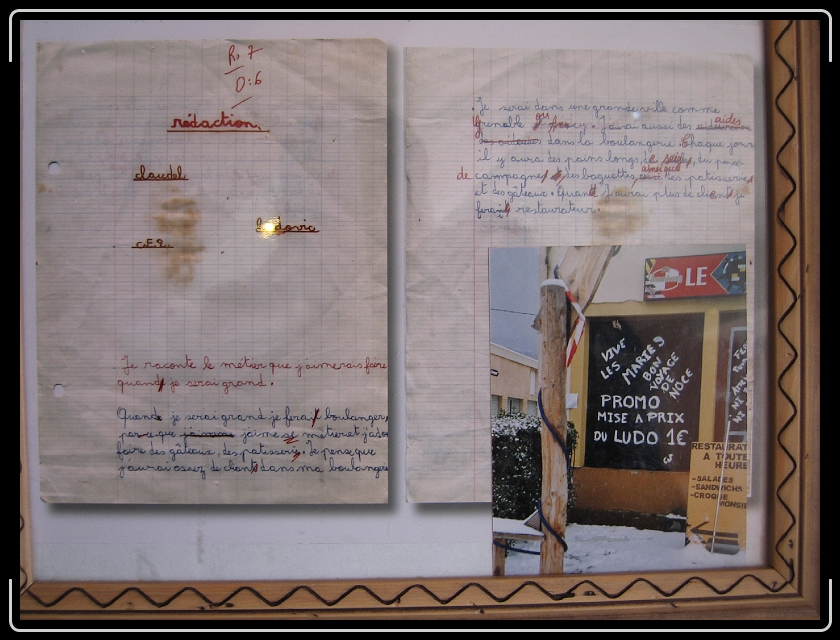 R: 7
O: 6
rédaction.
claudel
Ludovic
C.E.2.
Je raconte le métier que j'aimerais faire
quand je serai grand.
Quand je serai grand je ferai boulanger,
parce que j'aime se métier et j'adore
faire des gâteaux, des patisseries. Je pense que
j'aurai assez de clients dans ma boulangerie
Je serai dans une grande ville comme
Grenoble ou Annecy. J'aurai aussi des aides
dans la boulangerie. Chaque jour
il y aura des pains longs, de seigle, du pain
de campagne, des baguettes, ainsi que les patisseries
et des gâteaux. Quand j'aurai plus de clients je
ferai restaurateur.
LE
VIVE
LES
MARIES
BON
VOYAGE
DE
NOCE
PROMO
MISE A PRIX
DU LUDO 1€
RESTAURAT
A TOUTE
HEURE
-SALADES
-SANDWICHS
-CROQUE
MONSIE